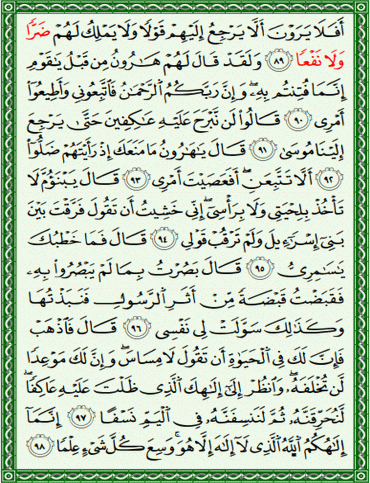 أَفَلَا يَرَوْنَ أَلَّا يَرْجِعُ إِلَيْهِمْ قَوْلًا وَلَا يَمْلِكُ لَهُمْ ضَرًّا
وَلَا نَفْعًا ﴿٨٩﴾ وَلَقَدْ قَالَ لَهُمْ هَارُونُ مِن قَبْلُ يَاقَوْمِ
إِنَّمَا فُتِنتُم بِهِ وَإِنَّ رَبَّكُمُ الرَّحْمَنُ فَاتَّبِعُونِي وَأَطِيعُوا
أَمْرِي ﴿٩٠﴾ قَالُوا لَن نَّبْرَحَ عَلَيْهِ عَاكِفِينَ حَتَّى يَرْجِعَ
إِلَيْنَا مُوسَى ﴿٩١﴾ قَالَ يَاهَارُونُ مَا مَنَعَكَ إِذْ رَأَيْتَهُمْ ضَلُّوا
﴿٩٢﴾ أَلَّا تَتَّبِعَنِ أَفَعَصَيْتَ أَمْرِي ﴿٩٣﴾ قَالَ يَبْنَؤُمَّ لَا
تَأْخُذْ بِلِحْيَتِي وَلَا بِرَأْسِي إِنِّي خَشِيتُ أَن تَقُولَ فَرَّقْتَ بَيْنَ
بَنِي إِسْرَاءِيلَ وَلَمْ تَرْقُبْ قَوْلِي ﴿٩٤﴾ قَالَ فَمَا خَطْبُكَ
يَسَامِرِيُّ ﴿٩٥﴾ قَالَ بَصُرْتُ بِمَا لَمْ يَبْصُرُوا بِهِ
فَقَبَضْتُ قَبْضَةً مِّنْ أَثَرِ الرَّسُولِ فَنَبَذْتُهَا
وَكَذَلِكَ سَوَّلَتْ لِي نَفْسِي ﴿٩٦﴾ قَالَ فَاذْهَبْ
فَإِنَّ لَكَ فِي الْحَيَوةِ أَن تَقُولَ لَا مِسَاسَ وَإِنَّ لَكَ مَوْعِدًا
لَّن تُخْلَفَهُ وَانظُرْ إِلَى إِلَهِكَ الَّذِي ظَلْتَ عَلَيْهِ عَاكِفًا
لَّنُحَرِّقَنَّهُ ثُمَّ لَنَنسِفَنَّهُ فِي الْيَمِّ نَسْفًا ﴿٩٧﴾ إِنَّمَا
إِلَهُكُمُ اللَّهُ الَّذِي لَا إِلَهَ إِلَّا هُوَ وَسِعَ كُلَّ شَيْءٍ عِلْمًا ﴿٩٨﴾